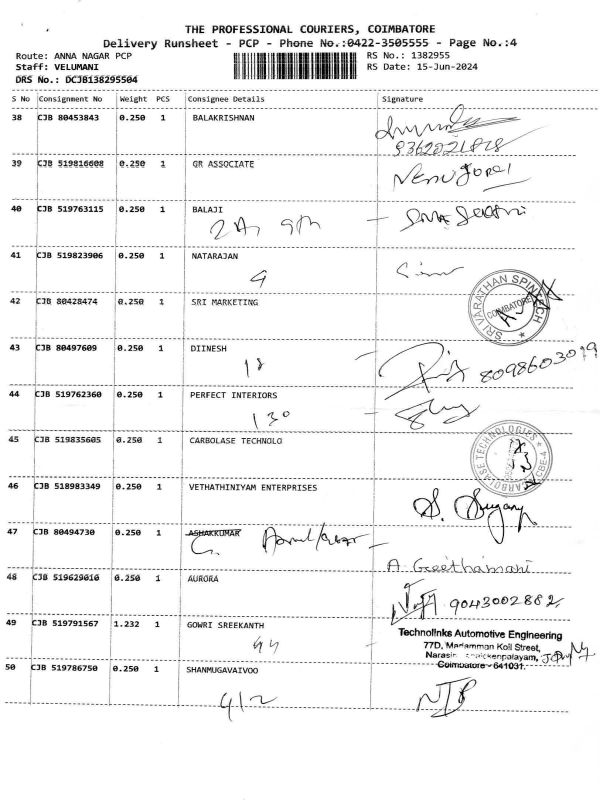 THE PROFESSIONAL COURIERS, COIMBATORE
Delivery Runsheet - PCP - Phone No.:0422-3505555 - Page No.:4
Route: ANNA NAGAR PCP RS No.: 1382955
Staff: VELUMANI RS Date: 15-Jun-2024
DRS No.: DCJB138295504
S No Consignment No Weight PCS Consignee Details Signature
38 CJB 80453843 0.250 1 BALAKRISHNAN
9362021818
39 CJB 519816608 0.250 1 GR ASSOCIATE
40 CJB 519763115 0.250 1 BALAJI
2A, 9th
41 CJB 519823906 0.250 1 NATARAJAN
9
SRI VARATHAN SPINTECH
COIMBATORE
42 CJB 80428474 0.250 1 SRI MARKETING
43 CJB 80497609 0.250 1 DIINESH
18 8098603019
44 CJB 519762360 0.250 1 PERFECT INTERIORS
130
45 CJB 519835605 0.250 1 CARBOLASE TECHNOLO
CARBOLASE TECHNOLOGIES
CBE-4
46 CJB 518983349 0.250 1 VETHATHINIYAM ENTERPRISES
47 CJB 80494730 0.250 1 ASHAKKUMAR
A. Geethamani
48 CJB 519629010 0.250 1 AURORA
9043002882
49 CJB 519791567 1.232 1 GOWRI SREEKANTH
Technolinks Automotive Engineering
77D, Mariamman Koil Street,
Coimbatore - 641031.
50 CJB 519786750 0.250 1 SHANMUGAVAIVOO
412